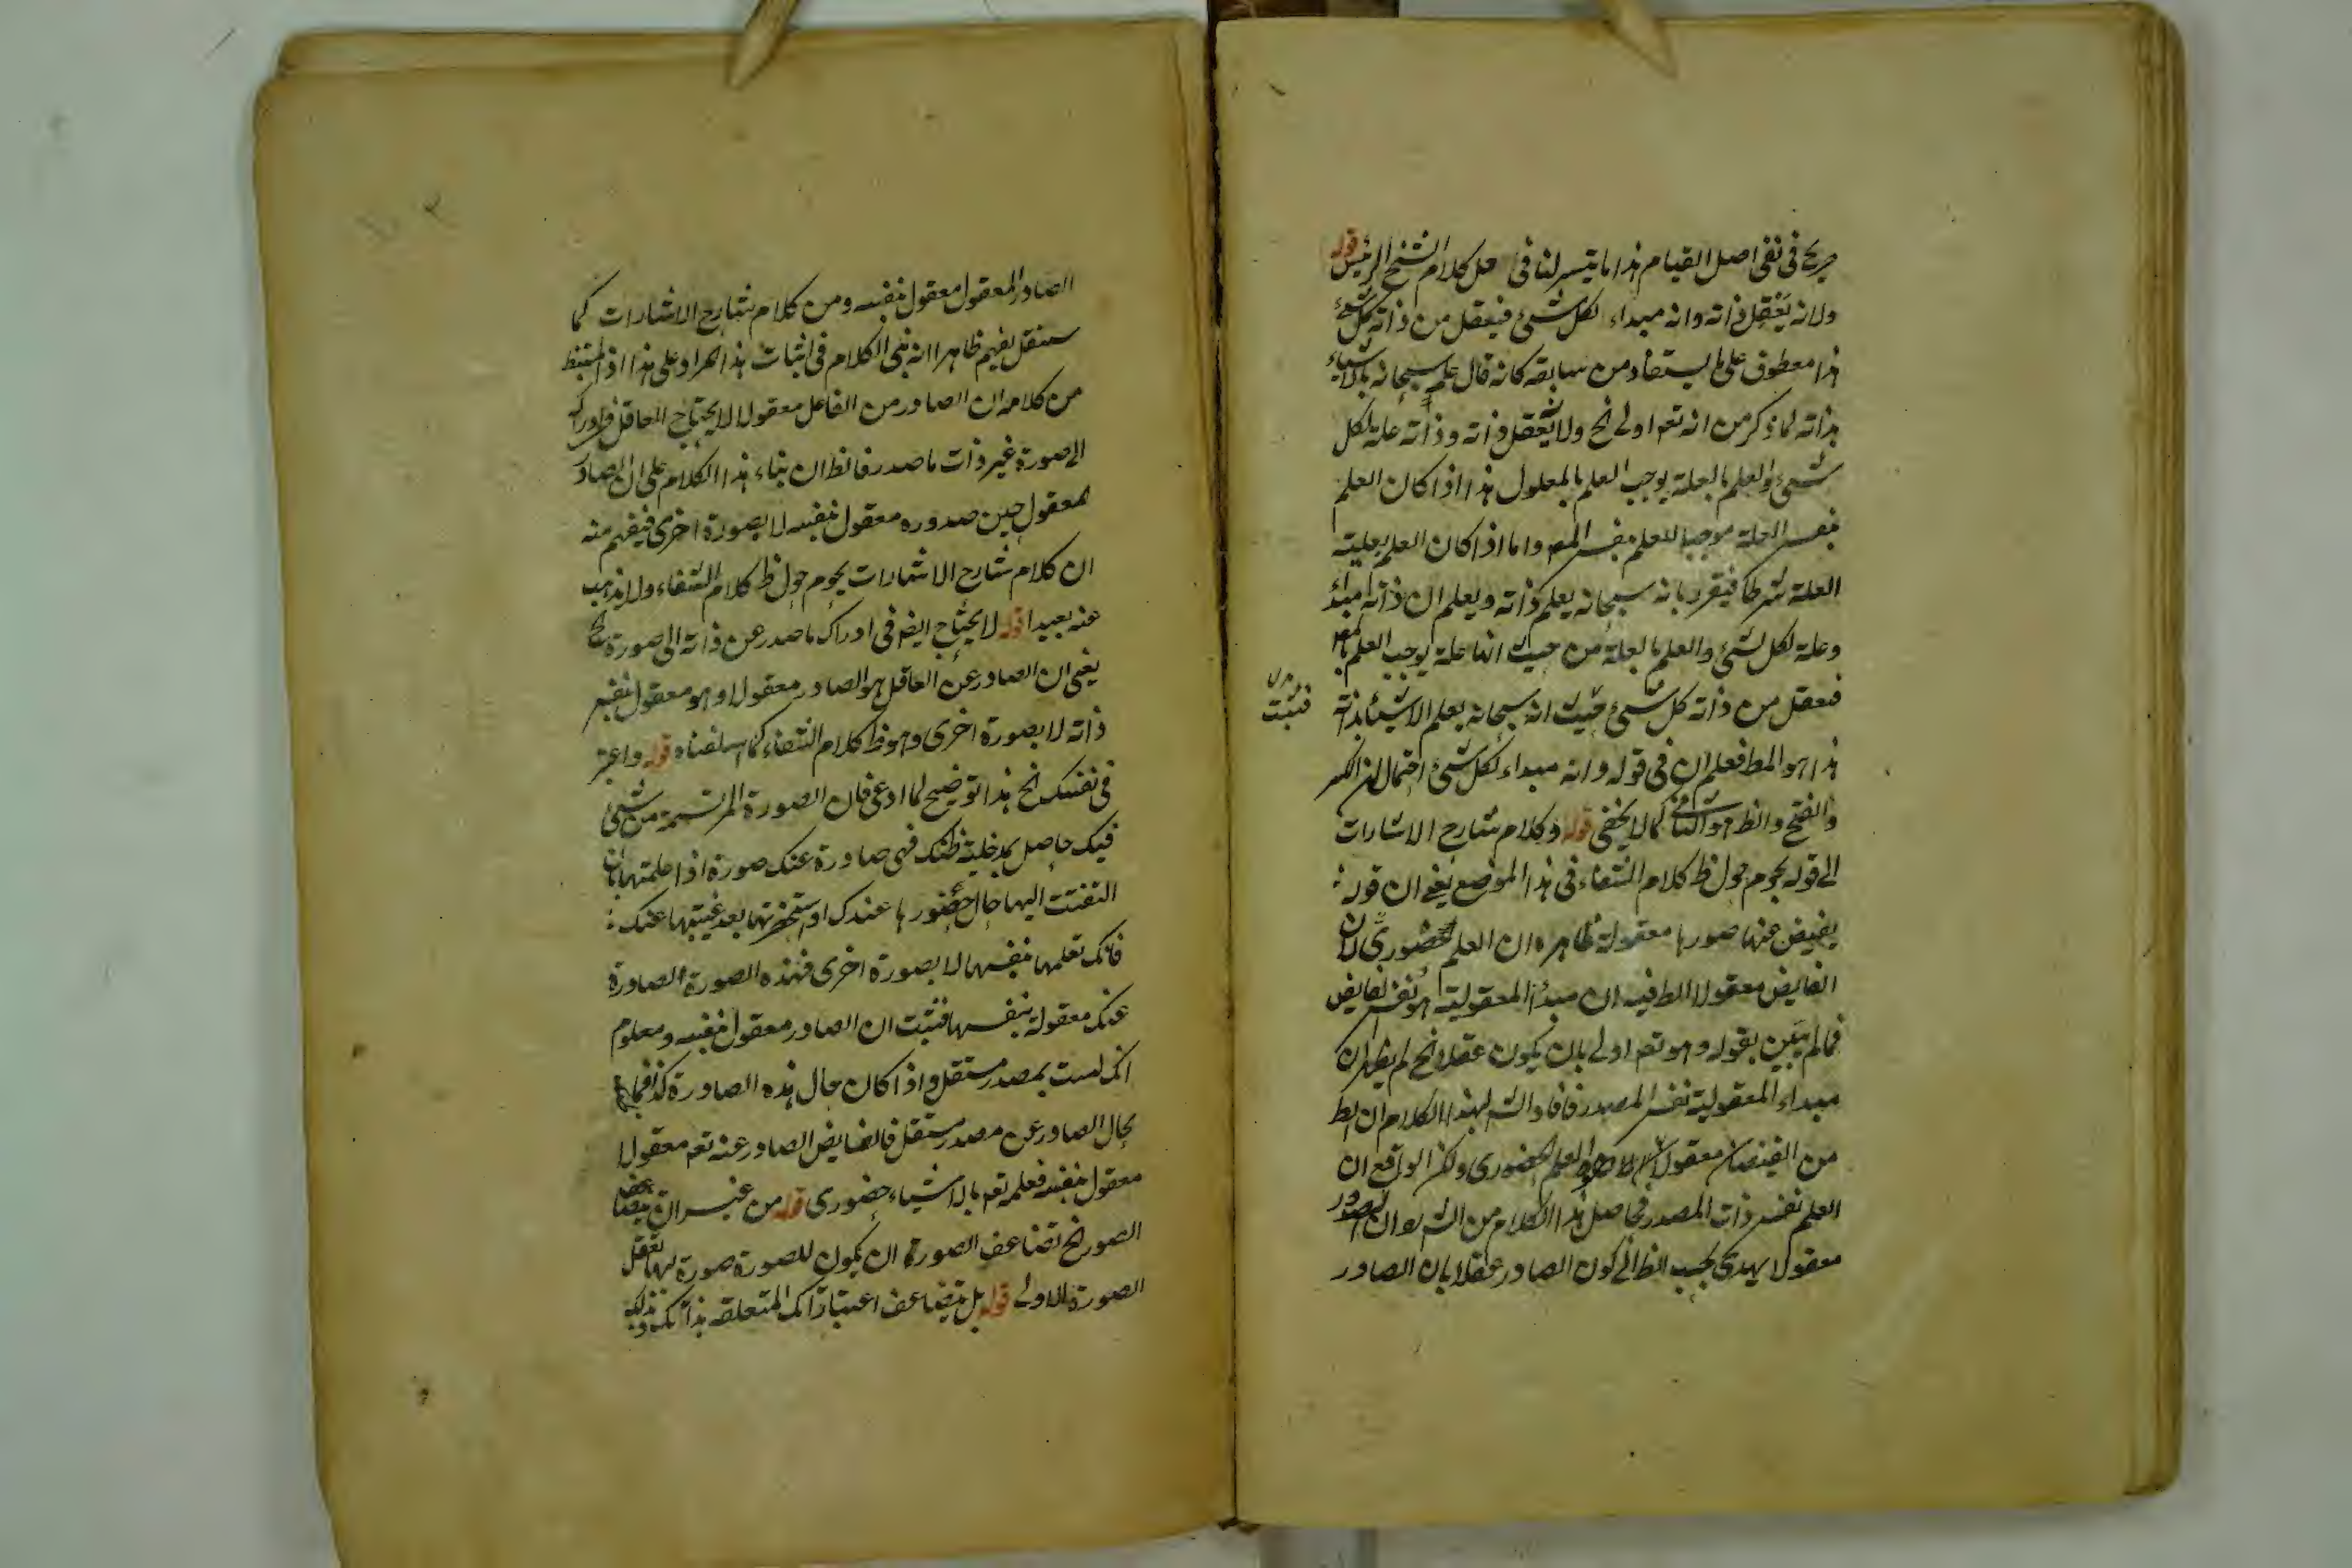 صريح في نفى اصل القيام هذا ما يتيسر لنا في حل كلام الشيخ الرئيس قوله
ولانه يعقل ذاته وانه مبداء لكل شئ فيعقل من ذاته كل شئ
هذا معطوف على ما يستفاد من سابقه كانه قال علم سبحانه بالاشياء
بذاته لما ذكر من انه تعم اولى الخ ولانه يعقل ذاته وذاته علة لكل
شئ والعلم بالعلة يوجب العلم بالمعلول هذا اذا كان العلم
بنفس العلة موجبا للعلم بنفس المعـ واما اذا كان العلم بعلية
العلة شرطا فيقرر بانه سبحانه يعلم ذاته ويعلم ان ذاته مبدأ
وعلة لكل شئ والعلم بالعلة من حيث انها علة يوجب العلم بالمعـ
فيعقل من ذاته كل شئ حيث انه سبحانه يعلم الاشياء بذاته
فثبت
هذا هو المط فعلم ان في قوله وانه مبداء لكل شئ احتمالان الكسر
والفتح والظ هو الثاني كما لا يخفى قوله وكلام شارح الاشارات
الى قوله يحوم حول ظ كلام الشفاء في هذا الموضع يعنى ان قوله
يفيض عنها صورها معقولة ظاهره ان العلم حضورى لان
الفايض معقولا الظ فيه ان مبدأ المعقولية هو نفس الفايض
فما لم يتبين بقوله وهو تعم اولى بان يكون عقلا الخ لم يظهر ان
مبداء المعقولية نفس المصدر فافاد الشـ بهذا الكلام ان الظ
من الفيضان معقولا هو العلم الحضورى ولكن الواقع ان
العلم نفس ذات المصدر فحاصل هذا الكلام من الشـ هو ان الصدور
معقولا يهدى بحسب الظ الى كون الصادر عقلا بان الصادر
الصادر المعقول معقول بنفسه ومن كلام شارح الاشارات كما
سننقل يفهم ظاهرا انه بنى الكلام في اثبات هذا المراد على هذا اذ المستنبط
من كلامه ان الصادر من الفاعل معقولا لا يحتاج العاقل في ادراكه
الى صورة غير ذات ما صدر فالظ ان بناء هذا الكلام على ان الصادر
المعقول حين صدوره معقول بنفسه لا بصورة اخرى فيفهم منه
ان كلام شارح الاشارات يحوم حول ظ كلام الشفاء ولا يذهب
عنه بعيدا قوله لا يحتاج ايضـ في ادراك ما صدر عن ذاته الى صورة الخ
يعنى ان الصادر عن العاقل هو الصادر معقولا وهو معقول بنفس
ذاته لا بصورة اخرى وهو ظ كلام الشفاء كما اسلفناه قوله واعتبر
في نفسك الخ هذا توضيح لما ادعى فان الصورة المرتسمة من شئ
فيك حاصل بمدخلية ظنك فهى صادرة عنك صورة اذا علمتها بان
التفتت اليها حال حضورها عندك او ستحضرتها بعد غيبتها عنك
فانك تعلمها بنفسها لا بصورة اخرى فهذه الصورة الصادرة
عنك معقولة بنفسها فثبت ان الصادر معقول بنفسه ومعلوم
انك لست بمصدر مستقل واذا كان حال هذه الصادرة كذا فما
بحال الصادر عن مصدر مستقل فالفايض الصادر عنه تعم معقولا
معقول بنفسه فعلمه تعم بالاشياء حضورى قوله من غير ان يتضاعف
الصور الخ تضاعف الصورة ان يكون للصورة صورة بها تعقل
الصورة الاولى قوله بل يتضاعف اعتباراتك المتعلقة بذاتك وبتلك